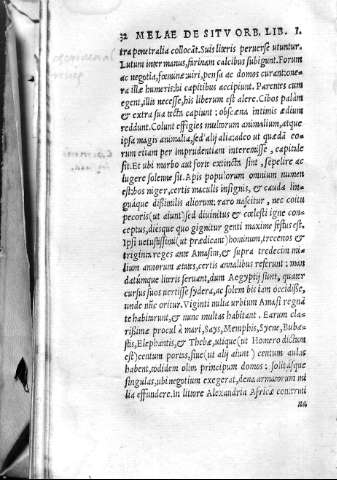 32 MELAE DE SITV ORB. LIB. I.
tra penetralia collocāt. Suis literis peruerse utuntur.
Lutum inter manus, farinam calcibus subigunt. Forum
ac negotia, fœminæ uiri, pensa ac domos curant: one-
ra illæ humeris: hi capitibus accipiunt. Parentes cum
egent, illis necesse, his liberum est alere. Cibos palàm
& extra sua tecta capiunt: obscæna intimis ædium
reddunt. Colunt effigies multorum animalium, atque
ipsa magis animalia, sed alij alia: adeo ut quædā eo-
rum etiam per imprudentiam interemisse, capitale
sit. Et ubi morbo aut forte extincta sint, sepelire ac
lugere solenne sit. Apis populorum omnium numen
est: bos niger, certis maculis insignis, & cauda lin-
guáque dissimilis aliorum: raro nascitur, nec coitu
pecoris (ut aiunt) sed diuinitus & cœlesti igne con-
ceptus, diesque quo gignitur genti maxime festus est.
Ipsi uetustissimi (ut prædicant) hominum, trecenos &
triginta reges ante Amasim, & supra tredecim mi-
lium annorum ætates, certis annalibus referunt: man
datúmque literis seruant, dum Aegyptij sunt, quater
cursus suos uertisse sydera, ac solem bis iam occidisse,
unde nūc oritur. Viginti milia urbium Amasi regnā
te habitarunt, & nunc multas habitant. Earum cla-
rissimæ procul à mari, Says, Memphis, Syene, Buba-
stis, Elephantis, & Thebæ, utique (ut Homero dictum
est) centum portas, siue (ut alij aiunt) centum aulas
habent, totidem olim principum domos: solitásque
singulas, ubi negotium exegerat, dena armatorum mi
lia effundere. In littore Alexandria Africæ contermi
na,